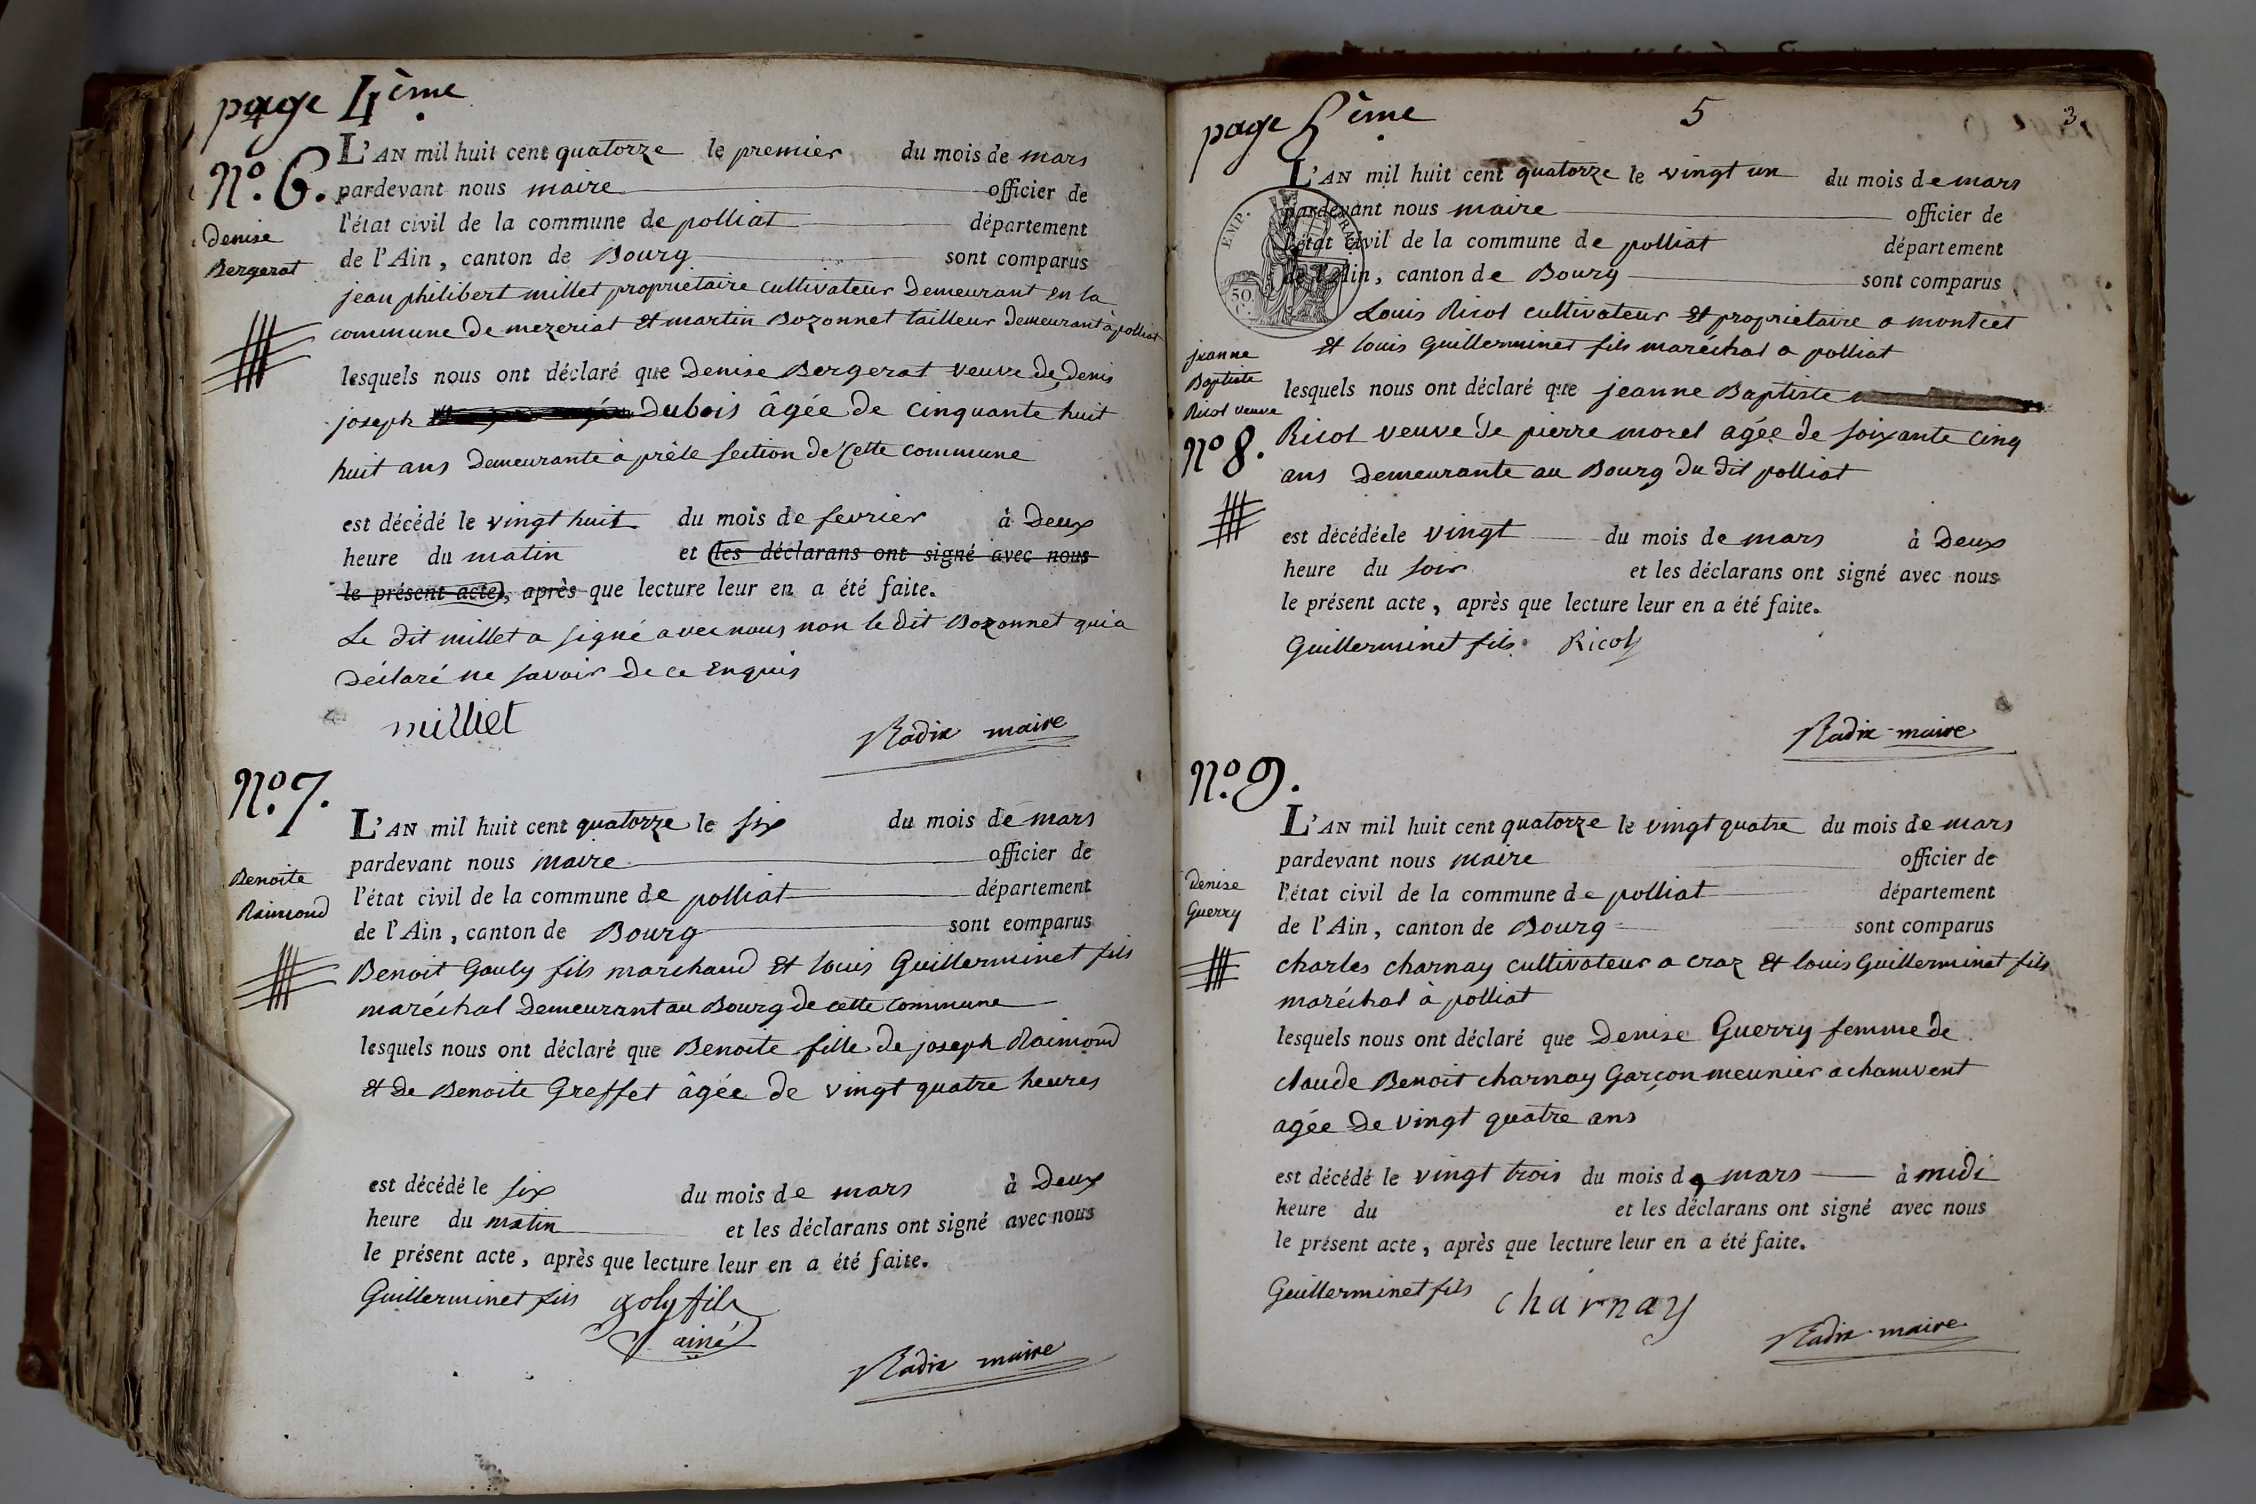 page 4ème
N.º 6.
Denise
Bergerat
L'AN mil huit cent quatorze le premier du mois de mars
pardevant nous maire officier de
l'état civil de la commune de polliat département
de l'Ain, canton de Bourg sont comparus
jean philibert millet propriétaire cultivateur Demeurant en la
commune de mezeriat et martin Bozonnet tailleur demeurant à polliat
lesquels nous ont déclaré que Denise Bergerat veuve de denis
joseph Dubois âgée de cinquante huit
huit ans Demeurante à prêle section de cette commune
est décédé le vingt huit du mois de fevrier à Deux
heure du matin et les déclarans ont signé avec nous
le présent acte, après que lecture leur en a été faite.
Le dit millet a signé avec nous non le dit Bozonnet qui a
Déclaré ne savoir de ce enquis
milliet
Radix maire
N.º 7.
Benoite
Raimond
L'AN mil huit cent quatorze le six du mois de mars
pardevant nous maire officier de
l'état civil de la commune de polliat département
de l'Ain, canton de Bourg sont comparus
Benoit Gouly fils marchand et louis Guillerminet fils
maréchal Demeurant au Bourg de cette commune
lesquels nous ont déclaré que Benoite fille de joseph Raimond
et de Benoite Greffet âgée de vingt quatre heures
est décédé le six du mois de mars à Deux
heure du matin et les déclarans ont signé avec nous
le présent acte, après que lecture leur en a été faite.
Guillerminet fils goly fils
ainé
Radix maire
page 5ème 5 3.
EMP. FRAN
50. C.
L'AN mil huit cent quatorze le vingt un du mois de mars
pardevant nous maire officier de
l'état civil de la commune de polliat département
de l'Ain, canton de Bourg sont comparus
Louis Ricol cultivateur et propriétaire a montcet
et louis Guillerminet fils maréchal a polliat
jeanne
Baptiste
Ricol veuve
Nº 8.
lesquels nous ont déclaré que jeanne Baptiste
Ricol veuve de pierre morel agée de soixante cinq
ans Demeurante au Bourg du dit polliat
est décédée le vingt du mois de mars à Deux
heure du soir et les déclarans ont signé avec nous
le présent acte, après que lecture leur en a été faite.
Guillerminet fils Ricol
Radix maire
N.º 9.
Denise
Guerry
L'AN mil huit cent quatorze le vingt quatre du mois de mars
pardevant nous maire officier de
l'état civil de la commune de polliat département
de l'Ain, canton de Bourg sont comparus
charles charnay cultivateur a craz et louis Guillerminet fils
maréchal à polliat
lesquels nous ont déclaré que Denise Guerry femme de
claude Benoit charnay Garçon meunier a chamvent
agée de vingt quatre ans
est décédé le vingt trois du mois de mars à midi
heure du et les déclarans ont signé avec nous
le présent acte, après que lecture leur en a été faite.
Guillerminet fils charnay
Radix maire